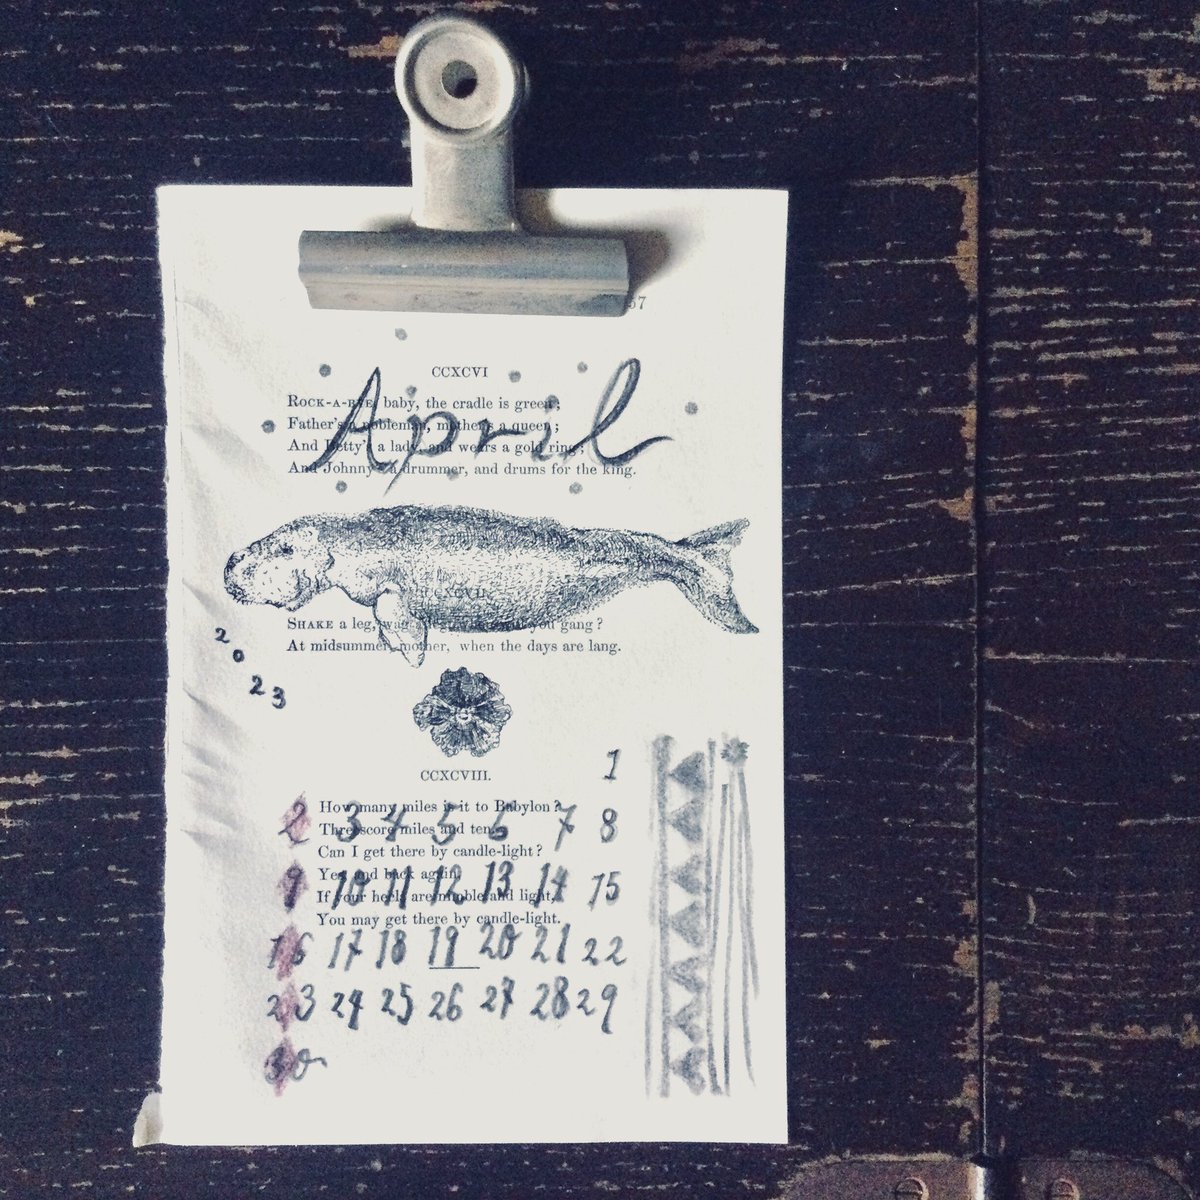 57
CCXCVI
April
ROCK-A-BYE, baby, the cradle is green;
Father's a nobleman, mother's a queen;
And Betty's a lady, and wears a gold ring;
And Johnny's a drummer, and drums for the king.
CCXCVII.
SHAKE a leg, wag a leg, when will you gang?
At midsummer, mother, when the days are lang.
2023
CCXCVIII.
1
How many miles is it to Babylon?
2 3 4 5 6 7 8
Threescore miles and ten.
Can I get there by candle-light?
Yes, and back again!
9 10 11 12 13 14 15
If your heels are nimble and light,
You may get there by candle-light.
16 17 18 19 20 21 22
23 24 25 26 27 28 29
30